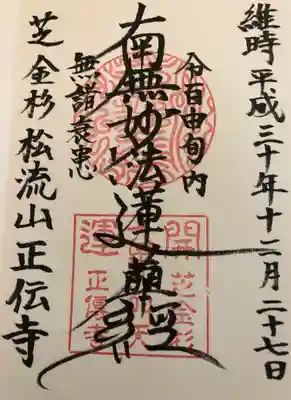 維時平成三十年十二月二十七日
令百由旬内
南無妙法蓮華經
無諸衰患
芝金杉松流山正伝寺
開運
芝金杉
正傳寺